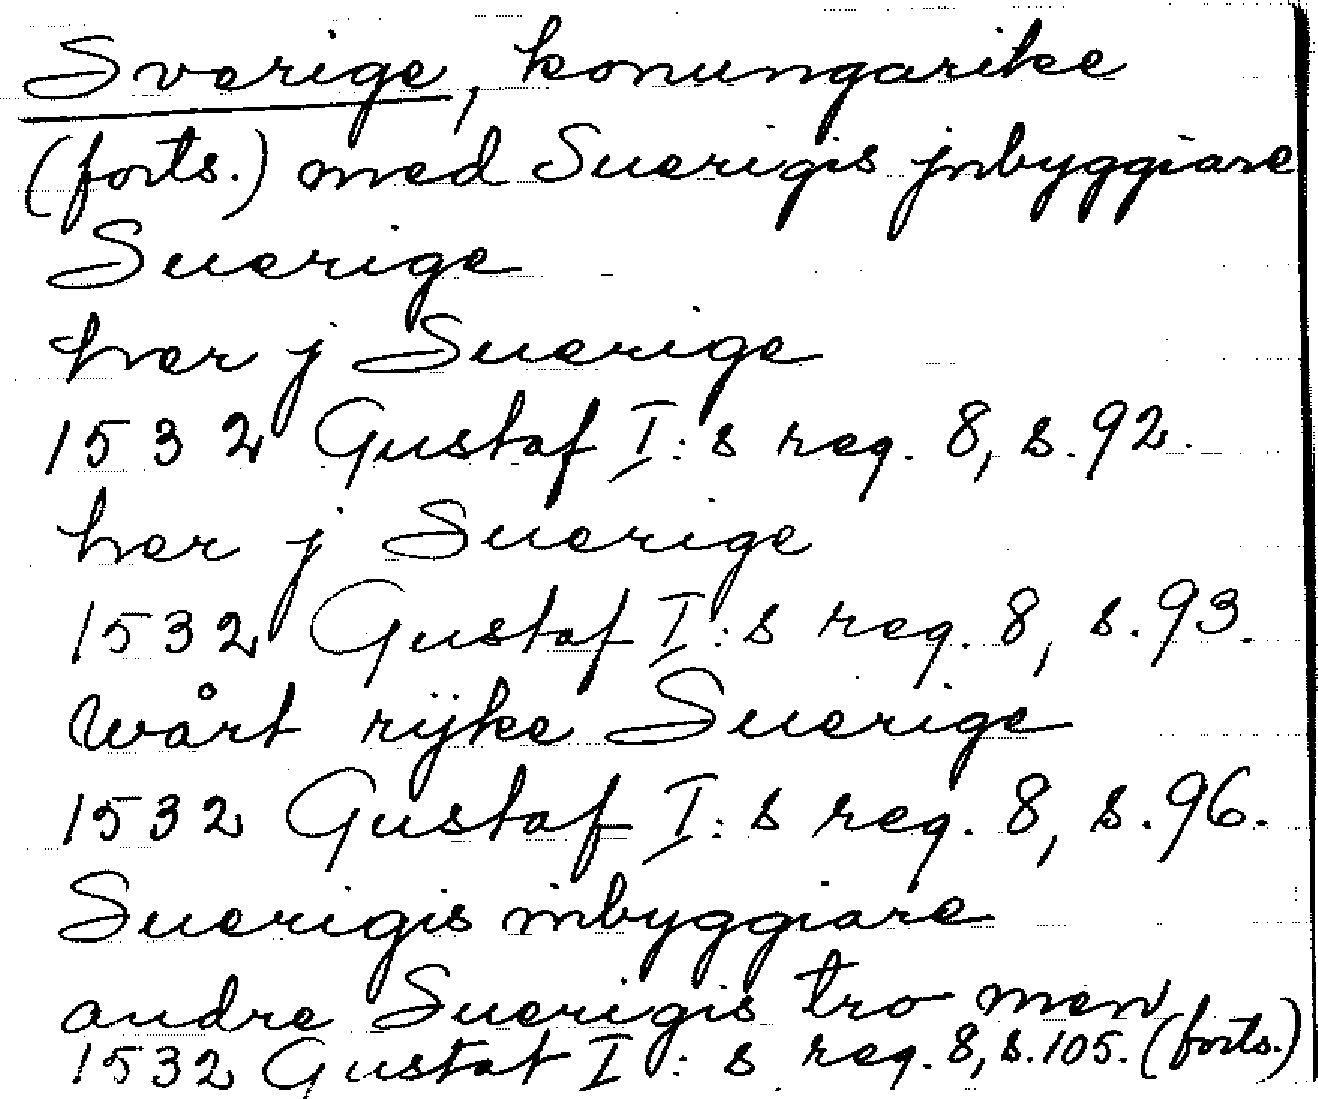 Sverige, konungarike
(forts.) med Suerigis jnbyggiare
Suerige
her j Suerige
1532 Gustaf I:s reg. 8, s. 92.
her j Suerige
1532 Gustaf I:s reg. 8, s. 93.
wårt rÿke Suerige
1532 Gustaf I:s reg. 8, s. 96.
Suerigis inbyggiare
andre Suerigis tro men
1532 Gustaf I:s reg. 8, s. 105. (forts.)